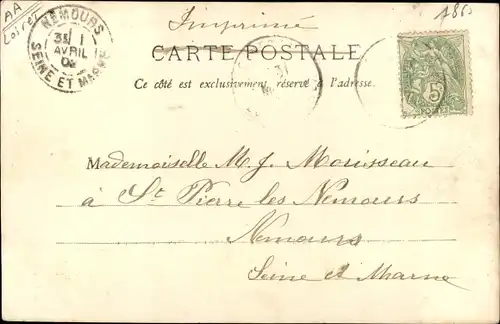 AA
Loiret
NEMOURS
3E / 1
AVRIL
02
SEINE ET MARNE
Imprimé
CARTE POSTALE
Ce côté est exclusivement réservé à l'adresse.
5
Mademoiselle M. J. Morisseau
à St Pierre les Nemours
Nemours
Seine et Marne